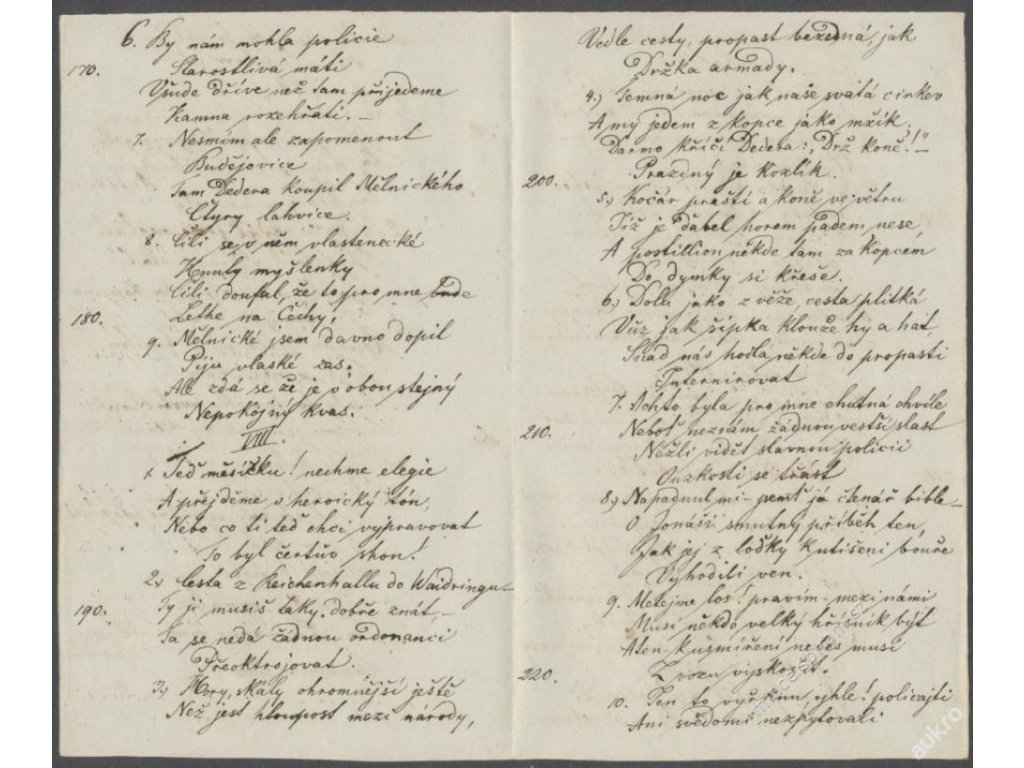 6. By nám mohla policie
170.
Starostlivá máti
Všude dříve než tam přijedeme
Kamna rozehřáti. –
7. Nesmím ale zapomenout
Budějovice
Tam Dedera koupil Mělnického
Čtyry lahvice.
8. Cíli se v něm vlastenecké
Hnuly myšlenky
Čili doufal, že to pro mne bude
180.
Lethe na Čechy,
9. Mělnické jsem davno dopil
Piju vlaské zas.
Ale zdá se že je v obou stejný
Nepokojný kvas.
VIII.
1. Teď měsíčku! nechme elegie
A přejděme v heroický tón,
Nebo co ti teď chci vypravovat
To byl čertův shon!
2.) Cesta z Reichenhallu do Waidringu
190.
Ty ji musíš taky dobře znát, –
Ta se nedá žádnou ordonancí
Přeoktrojovat.
3.) Hory, skály ohromnější ještě
Než jest hloupost mezi národy,
Vedle cesty, propast bezedná, jak
Držka armady.
4.) Temná noc jak naše svatá cirkev
A my jedem z kopce jako mžik.
Darmo křičí Dedera: „Drž koně!" –
200.
Prazdný je kozlík.
5.) Kočár praští a koně ve větru
Již je ďábel horem pádem nese,
A postillion někde tam za kopcem
Do dýmky si křeše.
6.) Dolů jako z věže, cesta plitká
Vůz jak šipka klouže hy a hat,
Snad nás hodlá někde do propasti
Internirovat
7. Achto byla pro mne chutná chvíle
210.
Neboť neznám žádnou vestší slast
Nežli vidět slavnou policii
Ouzkostí se třást
8.) Napadnul mi – jemť já čtenář bible –
O Jonáši smutný příběh ten,
Jak jej z loďky k utišení bouře
Vyhodili ven.
9. Metejme los! pravím – mezi námi
Musí někdo velký hříšník být
A ten k usmíření nebes musí
220.
Z vozu vyskočit.
10. Ten to vyřknu, ejhle! policajti
Ani svědomí nezpytovali
aukro